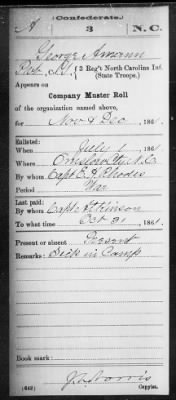 (Confederate.)
A 3 N.C.
George Amann
Pvt, Co. { 3 Reg't North Carolina Inf.
(State Troops.)
Appears on
Company Muster Roll
of the organization named above,
for Nov & Dec, 1861.
Enlisted:
When July 1, 1861.
Where Onslow Co N.C.
By whom Capt E. H. Rhodes
Period War
Last paid:
By whom Capt Atkinson
To what time Oct 31, 1861.
Present or absent Present
Remarks: Sick in Camp
Book mark:
(642)
Copyist.